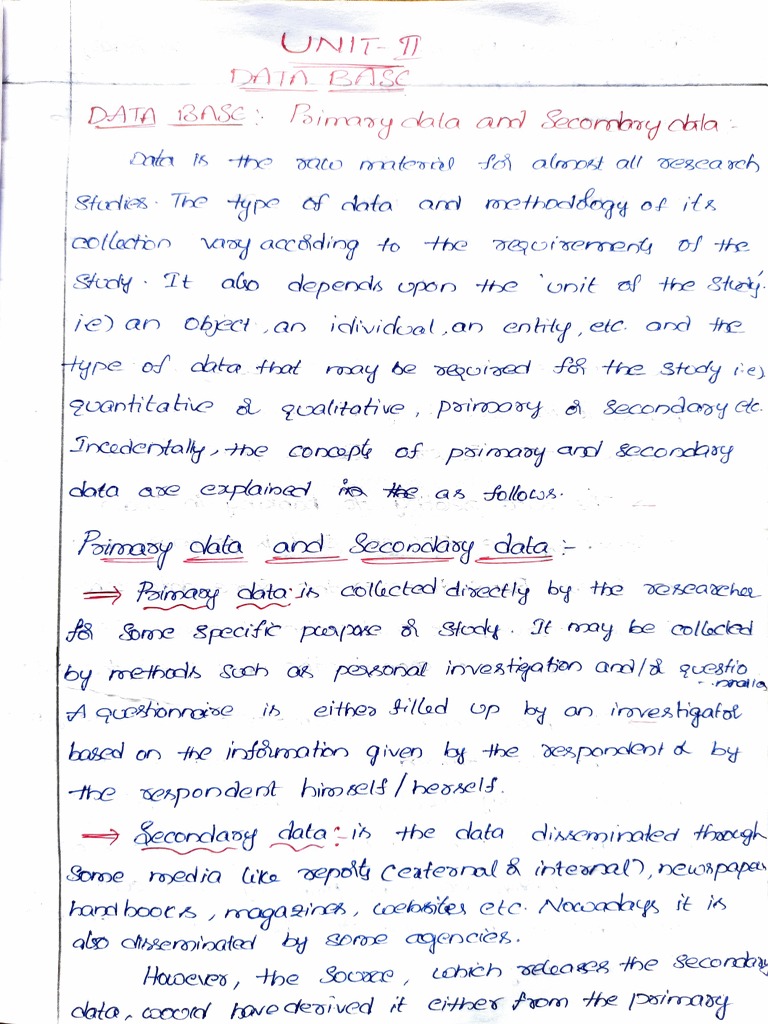 UNIT-II
DATA BASE
DATA BASE: Primary data and Secondary data :-
Data is the raw material for almost all research
studies. The type of data and methodology of its
collection vary according to the requirements of the
study. It also depends upon the 'unit of the study'.
i.e) an object, an idividual, an entity, etc. and the
type of data that may be required for the study i.e)
quantitative or qualitative, primary or secondary etc.
Incedentally, the concepts of primary and secondary
data are explained in the as follows.
Primary data and Secondary data :-
⇒ Primary data: is collected directly by the researcher
for some specific purpose or study. It may be collected
by methods such as personal investigation and/or questio
-nnaire
A questionnaire is either filled up by an investigator
based on the information given by the respondent or by
the respondent himself/herself.
⇒ Secondary data: is the data disseminated through
some media like reports (external or internal), newspaper
handbooks, magazines, websites etc. Nowadays it is
also disseminated by some agencies.
However, the source, which releases the secondary
data, would have derived it either from the primary